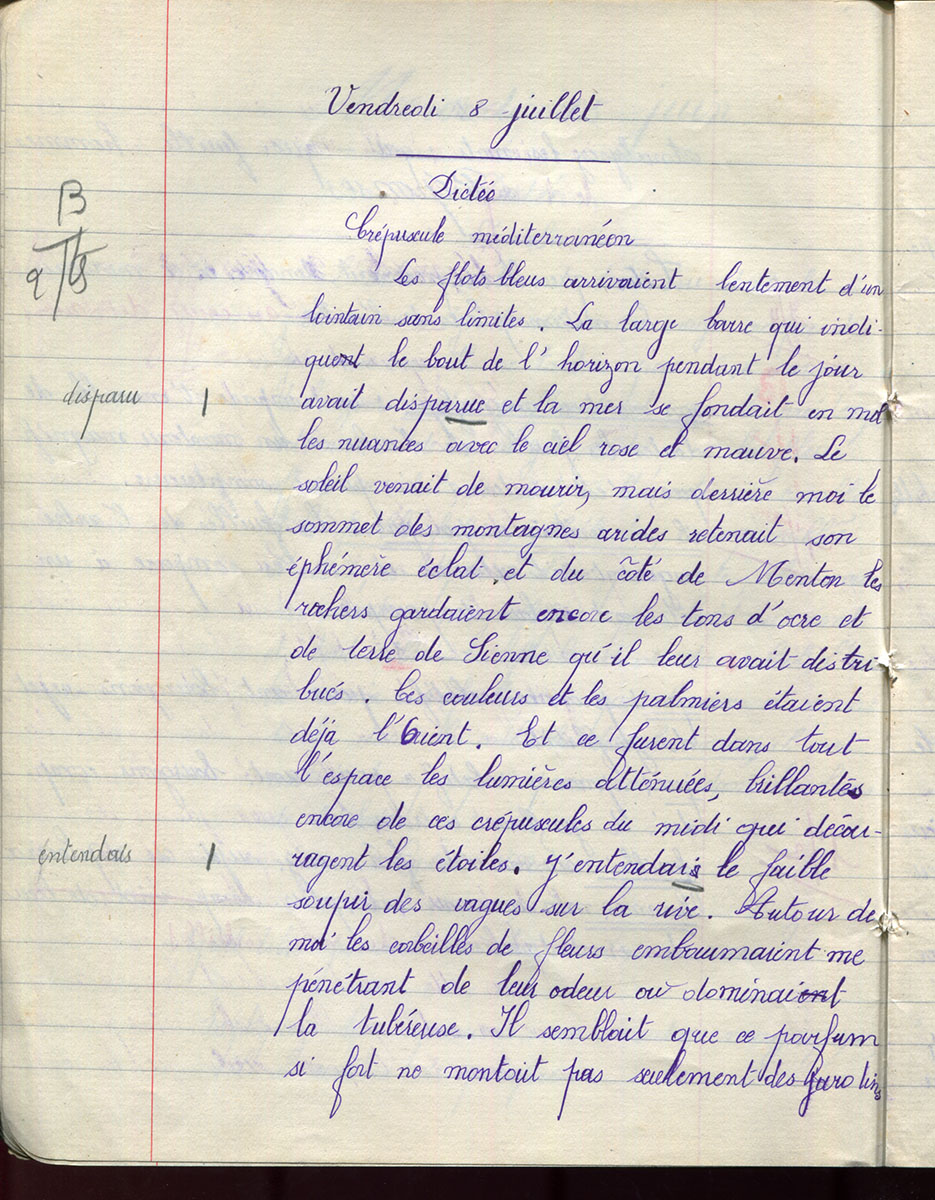 Vendredi 8 juillet
Dictée
Crépuscule méditerranéen
B
9/B
Les flots bleus arrivaient lentement d'un
lointain sans limites. La large barre qui indi-
quent le bout de l'horizon pendant le jour
disparu 1 avait disparue et la mer se fondait en mol
les nuances avec le ciel rose et mauve. Le
soleil venait de mourir, mais derrière moi le
sommet des montagnes arides retenait son
éphémère éclat et du côté de Menton les
rochers gardaient encore les tons d'ocre et
de terre de Sienne qu'il leur avait distri
bués. Ces couleurs et les palmiers étaient
déjà l'Orient. Et ce furent dans tout
l'espace les lumières atténuées, brillantes
encore de ces crépuscules du midi qui décou-
ragent les étoiles. J'entendais le faible
entendais 1 soupir des vagues sur la rive. Autour de
moi les corbeilles de fleurs embaumaient me
pénétrant de leur odeur où dominait
la tubéreuse. Il semblait que ce parfum
si fort ne montait pas seulement des jardins